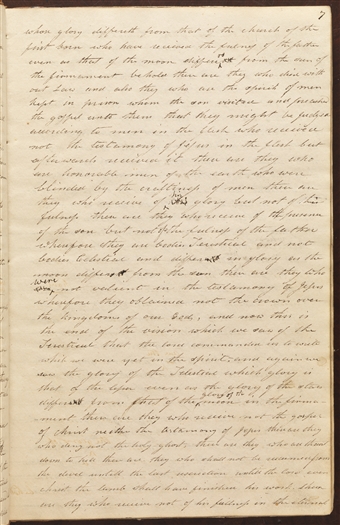 7
whose glory differeth from that of the church of the
first born who have received the fulness of the father
even as that of the moon differeth from the sun of
the firmament behold these are they who died with
out Law and also they who are the spirits of men
kept in prison whom the son visited and preached
the gospel unto them that they might be judged
according to men in the flesh who received
not the testamony of Jesus in the flesh but
afterwards received it these are they who
are honourable men of the earth who were
blinded by the craftiness of men these are
they who receive of his glory but not of his
fulness these are they who receive of the presence
of the son but not of the fulness of the father
wherefore they are bodies Terestrial and not
bodies Celestial and differeth in glory as the
moon differeth from the sun these are they who
were not valient in the testamony of Jesus
wherefore they obtained not the crown over
the kingdoms of our God, and now this is
the end of the vision which we saw of the
Terestrial that the lord commanded us to write
while we were yet in the spirit, and again we
saw the glory of the Telestial which glory is
that of the lesser even as the glory of the stars
differeth from that of the glory of the moon in the firma-
ment these are they who receive not the gospel
of Christ neither the testamony of Jesus these are they
who deny not the holy ghost. these are they who are thrust
down to hell these are they who shall not be redeemed from
the devil untill the last resurrection untill the lord even
christ the lamb shall have finished his work. these
are they who receive not of his fullness in the eternal